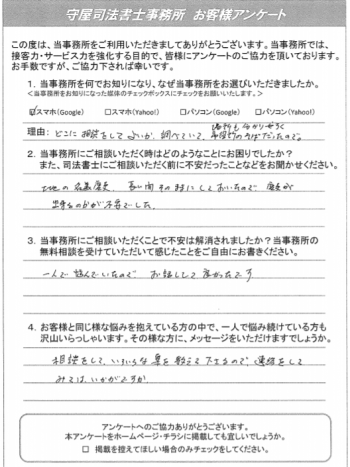 守屋司法書士事務所　お客様アンケート
この度は、当事務所をご利用いただきましてありがとうございます。当事務所では、
接客力・サービス力を強化する目的で、皆様にアンケートのご協力を頂いております。
お手数ですが、ご協力下されば幸いです。
1. 当事務所を何でお知りになり、なぜ当事務所をお選びいただきましたか。
<当事務所をお知りになった媒体のチェックボックスにチェックをお願いいたします。>
☑スマホ(Google) □スマホ(Yahoo!) □パソコン(Google) □パソコン(Yahoo!)
場所も分かりやすく
理由: どこに相談をしてよいか、調べていて、事務所のそばだったので。
2. 当事務所にご相談いただく時はどのようなことにお困りでしたか?
また、司法書士にご相談いただく前に不安だったことなどをお聞かせください。
土地の名義変更、長い間そのままにしておいたので 変更が
出来るのかが不安でした。
3. 当事務所にご相談いただくことで不安は解消されましたか?当事務所の
無料相談を受けていただいて感じたことをご自由にお書きください。
一人で悩んでいたので お話しして良かったです
4. お客様と同じ様な悩みを抱えている方の中で、一人で悩み続けている方も
沢山いらっしゃいます。その様な方に、メッセージをいただけますでしょうか。
相談をして、いろいろな事を教えて下さるので、連絡をして
みては、いかがですか
アンケートへのご協力ありがとうございます。
本アンケートをホームページ・チラシに掲載しても宜しいでしょうか。
□ 掲載を控えてほしい場合のみチェックをしてください。